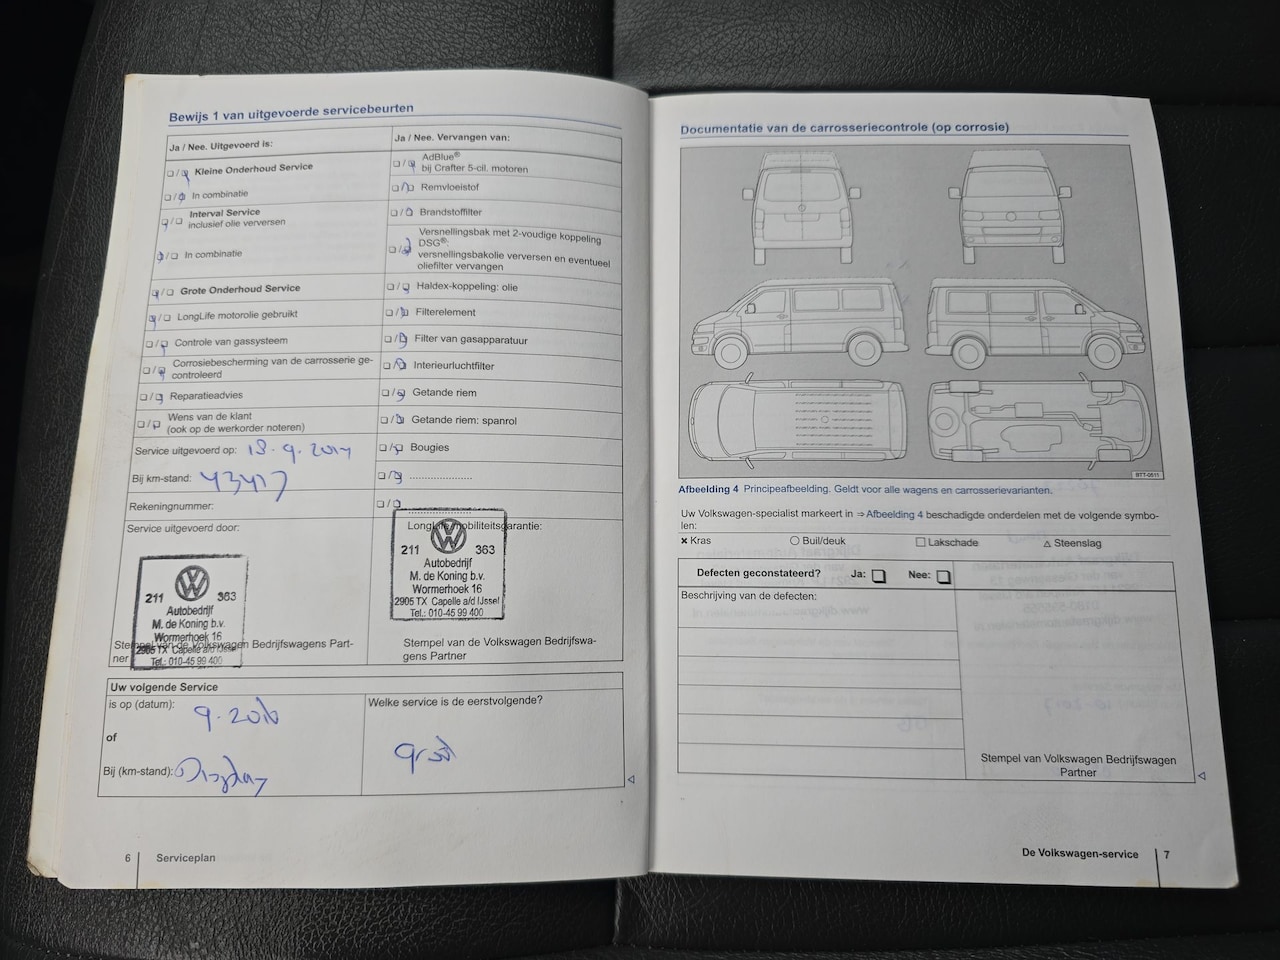 Bewijs 1 van uitgevoerde servicebeurten
Ja / Nee. Uitgevoerd is:
Kleine Onderhoud Service
In combinatie
Interval Service
inclusief olie verversen
In combinatie
Grote Onderhoud Service
LongLife motorolie gebruikt
Controle van gassysteem
Corrosiebescherming van de carrosserie ge-
controleerd
Reparatieadvies
Wens van de klant
(ook op de werkorder noteren)
Service uitgevoerd op: 18-9-2014
Bij km-stand: 43417
Rekeningnummer:
Service uitgevoerd door:
211 363
Autobedrijf
M. de Koning b.v.
Wormerhoek 16
2905 TX Capelle a/d IJssel
Tel.: 010-45 99 400
Stempel van de Volkswagen Bedrijfswagens Part-
ner
Ja / Nee. Vervangen van:
AdBlue®
bij Crafter 5-cil. motoren
Remvloeistof
Brandstoffilter
Versnellingsbak met 2-voudige koppeling
DSG®:
versnellingsbakolie verversen en eventueel
oliefilter vervangen
Haldex-koppeling: olie
Filterelement
Filter van gasapparatuur
Interieurluchtfilter
Getande riem
Getande riem: spanrol
Bougies
LongLife mobiliteitsgarantie:
211 363
Autobedrijf
M. de Koning b.v.
Wormerhoek 16
2905 TX Capelle a/d IJssel
Tel.: 010-45 99 400
Stempel van de Volkswagen Bedrijfswa-
gens Partner
Uw volgende Service
is op (datum): 9-2016
of
Bij (km-stand): Display
Welke service is de eerstvolgende?
groot
6 Serviceplan
Documentatie van de carrosseriecontrole (op corrosie)
BTT-0511
Afbeelding 4 Principeafbeelding. Geldt voor alle wagens en carrosserievarianten.
Uw Volkswagen-specialist markeert in ⇒ Afbeelding 4 beschadigde onderdelen met de volgende symbo-
len:
× Kras ○ Buil/deuk □ Lakschade △ Steenslag
Defecten geconstateerd? Ja: □ Nee: □
Beschrijving van de defecten:
Stempel van Volkswagen Bedrijfswagens
Partner
De Volkswagen-service 7